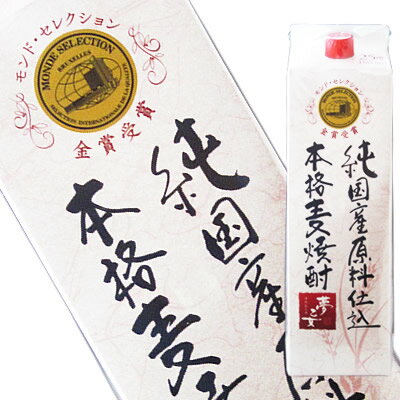 モンド・セレクション
MONDE SELECTION
BRUXELLES
SELECTION INTERNATIONALE DE LA QUALITE
金賞受賞
純国産
本格麦
金賞受賞
純国産原料仕込
本格麦焼酎
夢乙女